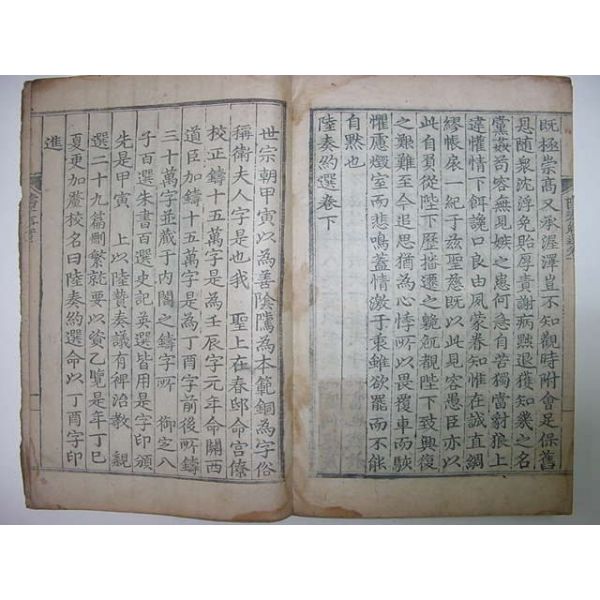 既極崇高又承渥澤豈不知觀時附會足保舊
恩隨衆沈浮免貽厚責謝病黜退獲知幾之名
黨姦苟容無見嫉之患何急自苦獨當豺狼上
違懽情下餌讒口良由夙蒙眷知惟在誠直綢
繆帳扆一紀于茲聖慈旣以此見容愚臣亦以
此自負從陛下歷播遷之艱觀陛下致興復
之艱難至今追思猶為心悸所以畏覆車而駭
懼慮燬室而悲鳴蓋情激于衷雖欲罷而不能
自默也
陸奏約選卷下
世宗朝甲寅以為善陰騭為本範銅為字俗
稱衛夫人字是也我 聖上在春邸命宮僚
校正鑄十五萬字是為壬辰字元年命關西
道臣加鑄十五萬字是為丁酉字前後所鑄
三十萬字並藏于內閣之鑄字所 御定八
子百選朱書百選史記英選皆用是字印頒
先是甲寅 上以陸贄奏議有裨治教 親
選二十九篇刪繁就要以資乙覽是年丁巳
夏更加釐校名曰陸奏約選命以丁酉字印
進